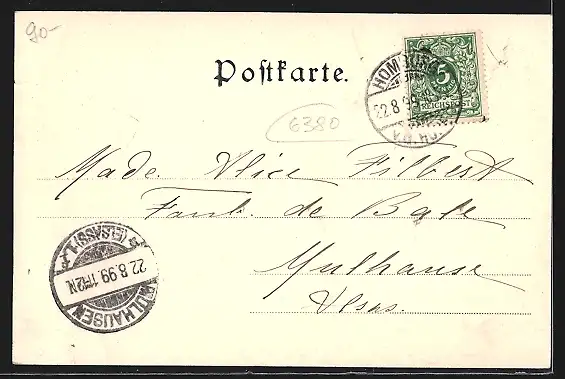 90-
Postkarte.
HOMBURG
22.8.99
V.D.H.
5
REICHSPOST
6380
Made. Alice Filbert
Faub. de Bale
Mulhause
Alsas.
MÜLHAUSEN
22.8.99 11-12N.
(ELSASS)